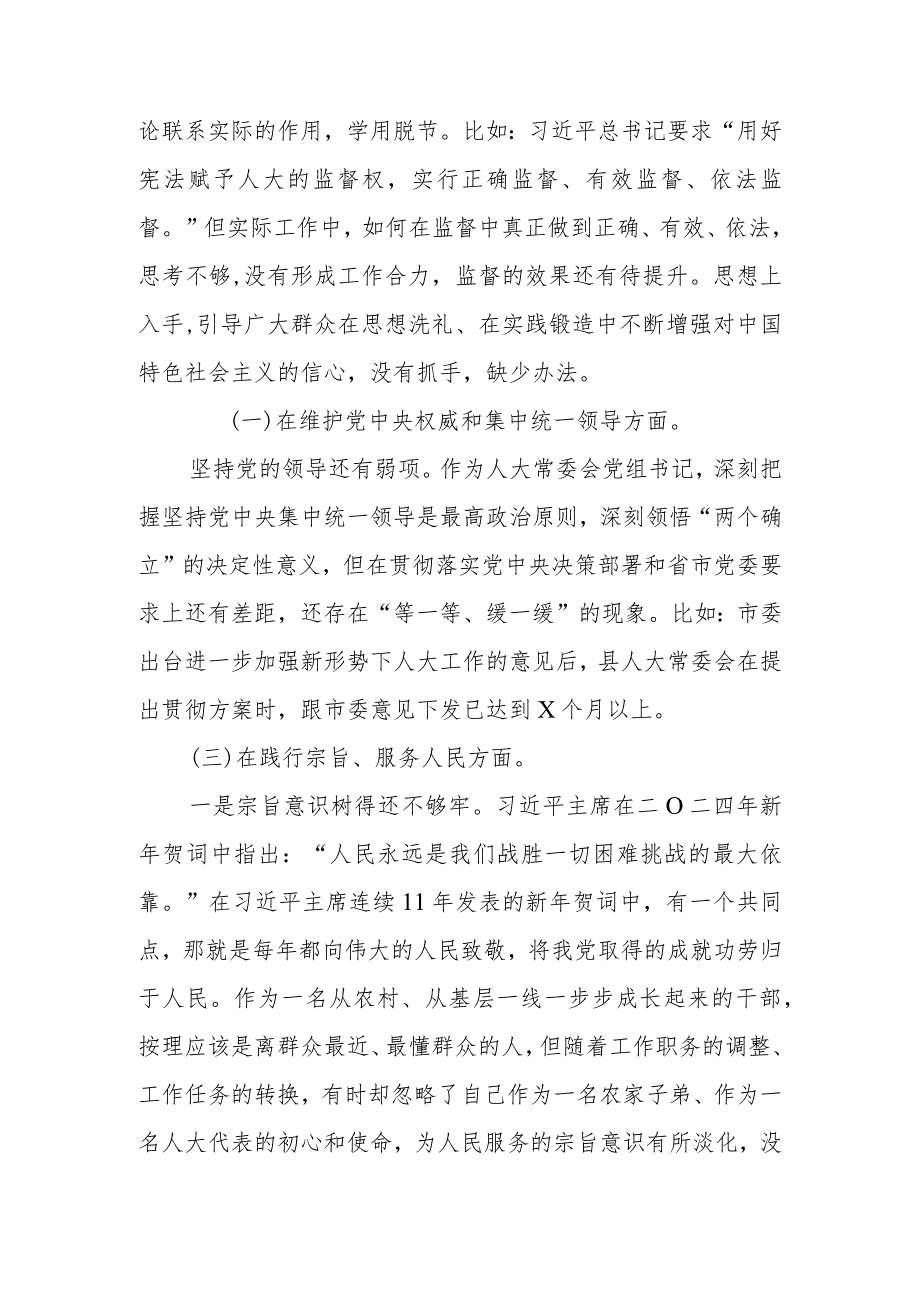 论联系实际的作用，学用脱节。比如：习近平总书记要求“用好
宪法赋予人大的监督权，实行正确监督、有效监督、依法监
督。”但实际工作中，如何在监督中真正做到正确、有效、依法，
思考不够,没有形成工作合力，监督的效果还有待提升。思想上
入手,引导广大群众在思想洗礼、在实践锻造中不断增强对中国
特色社会主义的信心，没有抓手，缺少办法。
(一)在维护党中央权威和集中统一领导方面。
坚持党的领导还有弱项。作为人大常委会党组书记，深刻把
握坚持党中央集中统一领导是最高政治原则，深刻领悟“两个确
立”的决定性意义，但在贯彻落实党中央决策部署和省市党委要
求上还有差距，还存在“等一等、缓一缓”的现象。比如：市委
出台进一步加强新形势下人大工作的意见后，县人大常委会在提
出贯彻方案时，跟市委意见下发已达到X个月以上。
(三)在践行宗旨、服务人民方面。
一是宗旨意识树得还不够牢。习近平主席在二O二四年新
年贺词中指出：“人民永远是我们战胜一切困难挑战的最大依
靠。”在习近平主席连续11年发表的新年贺词中，有一个共同
点，那就是每年都向伟大的人民致敬，将我党取得的成就功劳归
于人民。作为一名从农村、从基层一线一步步成长起来的干部，
按理应该是离群众最近、最懂群众的人，但随着工作职务的调整、
工作任务的转换，有时却忽略了自己作为一名农家子弟、作为一
名人大代表的初心和使命，为人民服务的宗旨意识有所淡化，没